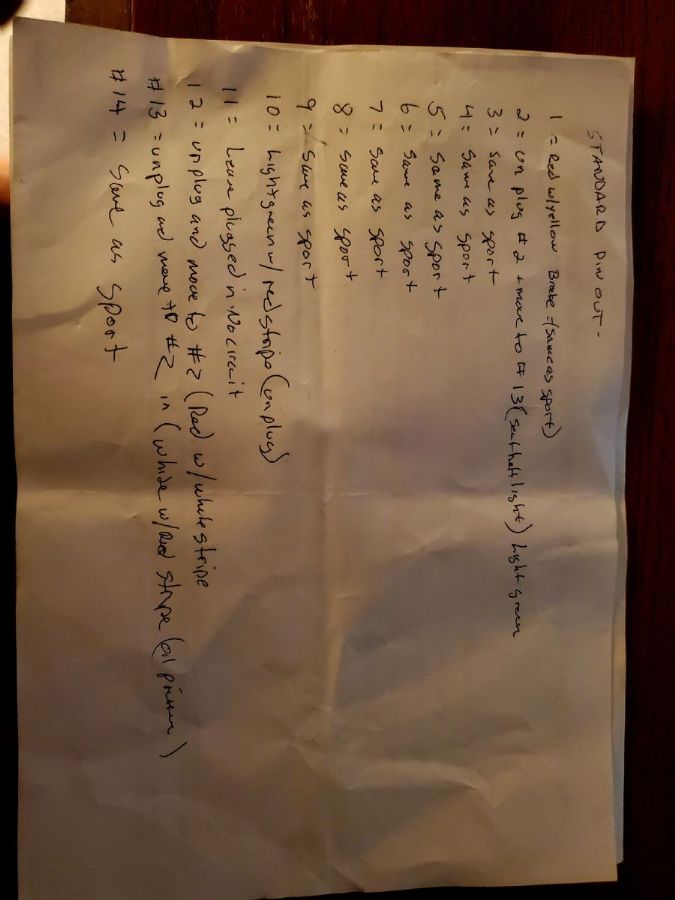 STANDARD PIN OUT-
1 = Red w/yellow Brake -(same as sport)
2 = un plug #2 + move to #13 (seat belt light) Light green
3 = same as sport
4 = same as sport
5 = same as sport
6 = same as sport
7 = same as sport
8 = same as sport
9 = same as sport
10 = Light green w/ red stripe (unplug)
11 = Leave plugged in No circuit
12 = unplug and move to #7 (Red w/white stripe
#13 = unplug and move to #2 in (white w/Red stripe (oil
#14 = same as sport